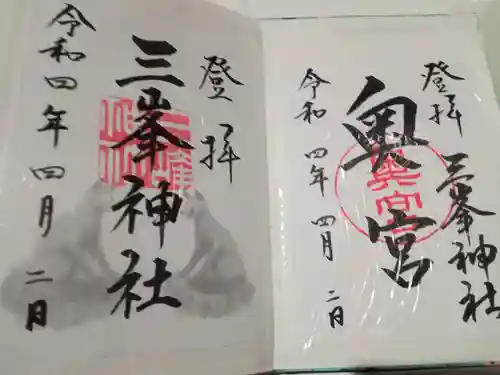 登拝
三峯神社
令和四年四月二日
登拝
三峯神社
奥宮
令和四年四月二日